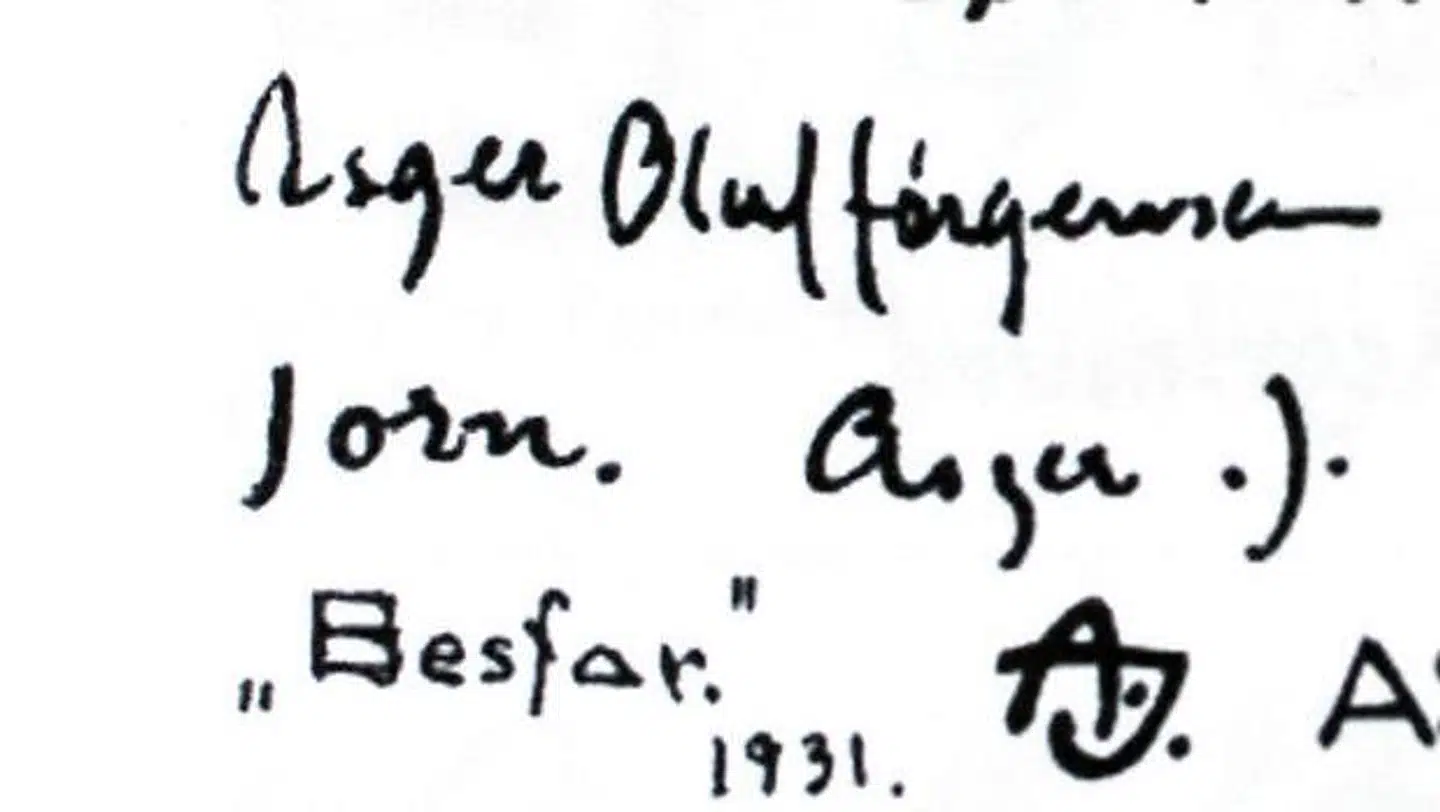 Asger Oluf Jörgensen
Jorn. Asger .J.
„Besfar."
1931. AJ.